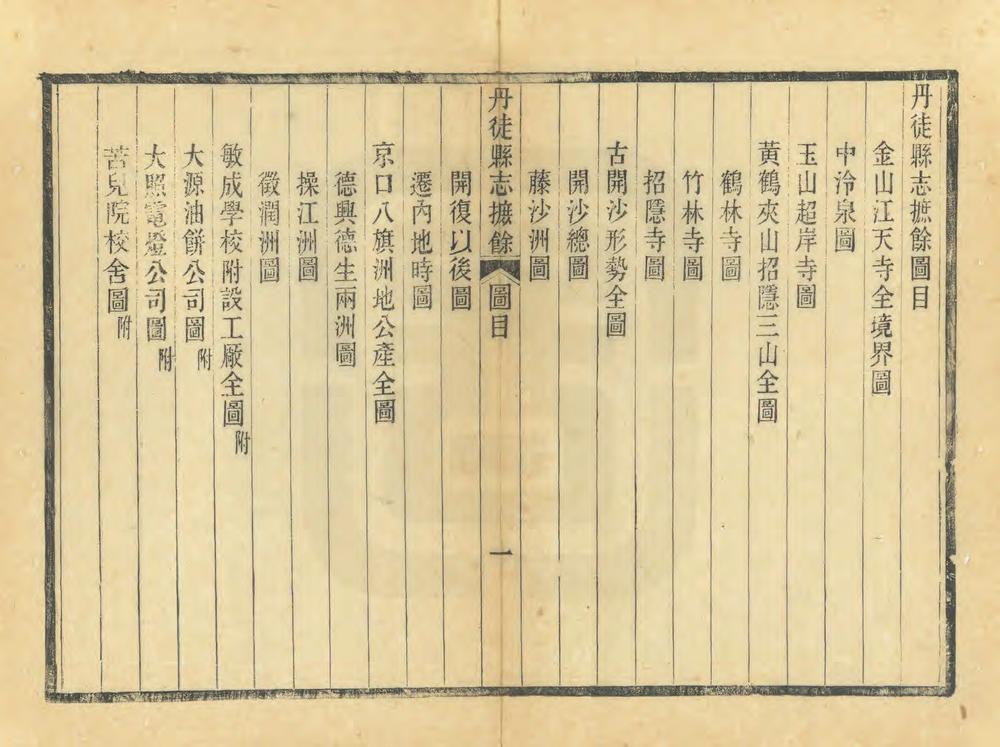 丹徒縣志摭餘圖目
金山江天寺全境界圖
中泠泉圖
玉山超岸寺圖
黃鶴夾山招隱三山全圖
鶴林寺圖
竹林寺圖
招隱寺圖
古開沙形勢全圖
開沙總圖
藤沙洲圖
丹徒縣志摭餘 圖目 一
開復以後圖
遷內地時圖
京口八旗洲地公產全圖
德興德生兩洲圖
操江洲圖
徵潤洲圖
敏成學校附設工廠全圖附
大源油餅公司圖附
大照電燈公司圖附
苦兒院校舍圖附